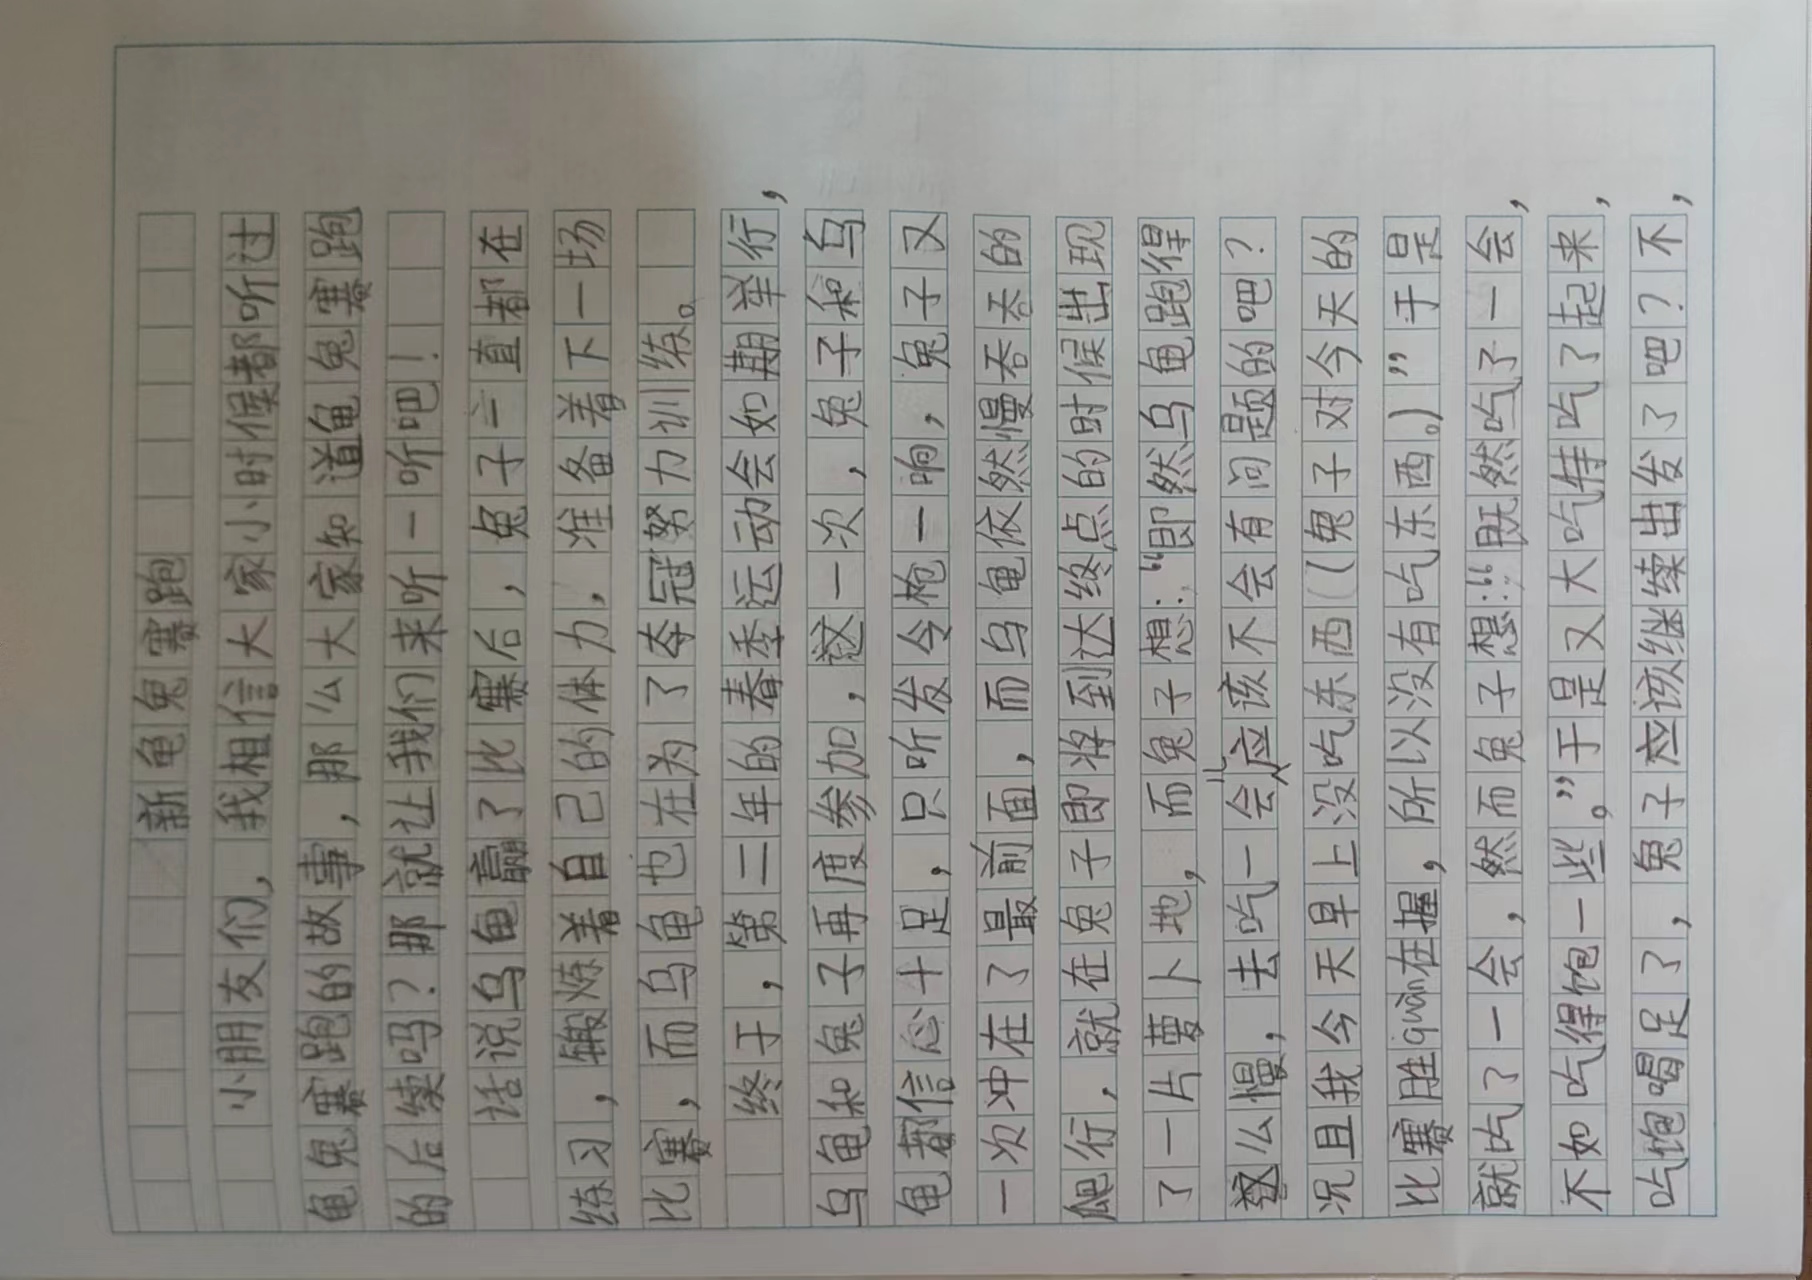 新龟兔赛跑
小朋友们，我相信大家小时候都听过
龟兔赛跑的故事，那么大家知道龟兔赛跑
的后续吗？那就让我们来听一听吧！
话说乌龟赢了比赛后，兔子一直都在
练习，锻炼着自己的体力，准备着下一场
比赛，而乌龟也在为了夺冠努力训练。
终于，第二年的春季运动会如期举行，
乌龟和兔子再度参加，这一次，兔子和乌
龟都信心十足，只听发令枪一响，兔子又
一次冲在了最前面，而乌龟依然慢吞吞的
爬行，就在兔子即将到达终点的时候出现
了一片萝卜地，而兔子想：“即然乌龟跑得
这么慢，去吃一会儿应该不会有问题的吧？
况且我今天早上没吃东西（兔子对今天的
比赛胜quàn在握，所以没有吃东西。）”于是
就吃了一会，然而兔子想：“既然吃了一会，
不如吃得饱一些。”于是又大吃特吃了起来，
吃饱喝足了，兔子应该继续出发了吧？不，